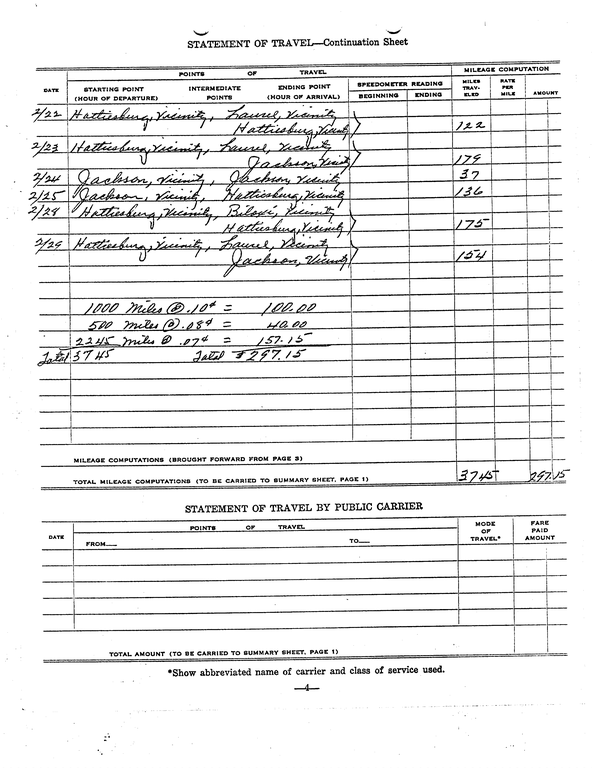 STATEMENT OF TRAVEL—Continuation Sheet
POINTS OF TRAVEL MILEAGE COMPUTATION
DATE STARTING POINT (HOUR OF DEPARTURE) INTERMEDIATE POINTS ENDING POINT (HOUR OF ARRIVAL) SPEEDOMETER READING BEGINNING ENDING MILES TRAV- ELED RATE PER MILE AMOUNT
2/22 Hattiesburg, Vicinity, Laurel, Vicinity
Hattiesburg, Vicinity 122
2/23 Hattiesburg, Vicinity, Laurel, Vicinity
Jackson, Vicinity 179
2/24 Jackson, Vicinity, Jackson, Vicinity 37
2/25 Jackson, Vicinity, Hattiesburg, Vicinity 136
2/28 Hattiesburg, Vicinity, Biloxi, Vicinity
Hattiesburg, Vicinity 175
2/29 Hattiesburg, Vicinity, Laurel, Vicinity
Jackson, Vicinity 154
1000 Miles @ .10¢ = 100.00
500 Miles @ .08¢ = 40.00
2245 Miles @ .07¢ = 157.15
Total 3745 Total $297.15
MILEAGE COMPUTATIONS (BROUGHT FORWARD FROM PAGE 3)
TOTAL MILEAGE COMPUTATIONS (TO BE CARRIED TO SUMMARY SHEET, PAGE 1) 3745 297.15
STATEMENT OF TRAVEL BY PUBLIC CARRIER
DATE POINTS OF TRAVEL MODE OF TRAVEL* FARE PAID AMOUNT
FROM— TO—
TOTAL AMOUNT (TO BE CARRIED TO SUMMARY SHEET, PAGE 1)
*Show abbreviated name of carrier and class of service used.
—4—